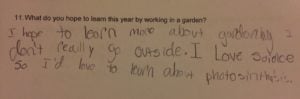 11. What do you hope to learn this year by working in a garden?
I hope to learn more about gardening I
don't really go outside. I Love science
So I'd love to learn about photosinthisis.